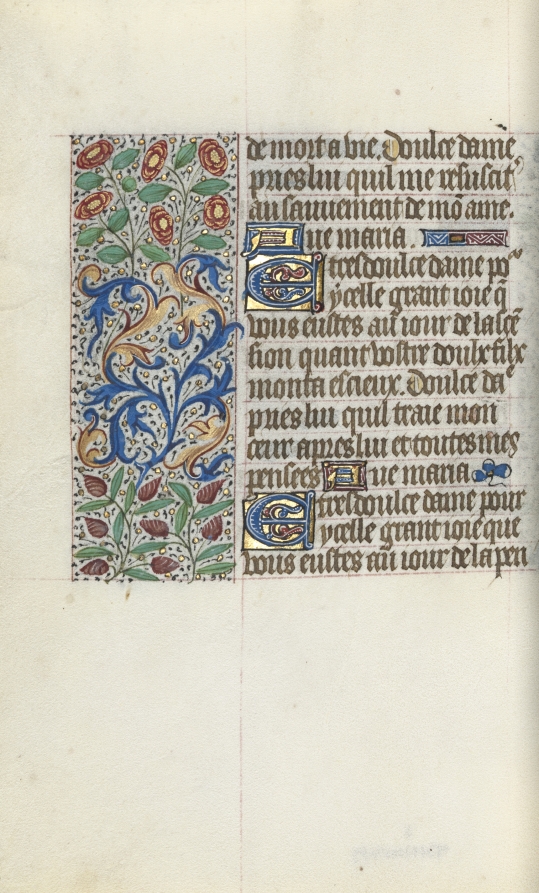 de mort a vie. Doulce dame
pries lui quil me resuscit
au sauuement de mõ ame.
Aue maria.
Et tresdoulce dame po
ycelle grant ioie q̃
vous eustes au iour de lascẽ
sion quant vostre doulx filx
monta es cieux. Doulce da
pries lui quil traie mon
cœur apres lui et toutes mes
pensees Aue maria
E tresdoulce dame pour
ycelle grant ioie que
vous eustes au iour de la pen